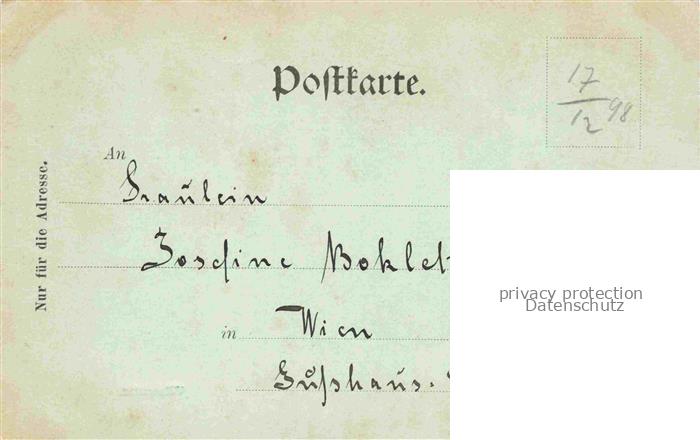 Postkarte.
17
12 98
Nur für die Adresse.
An
Fräulein
Josefine Boklet
in Wien
Gußhaus.
privacy protection
Datenschutz